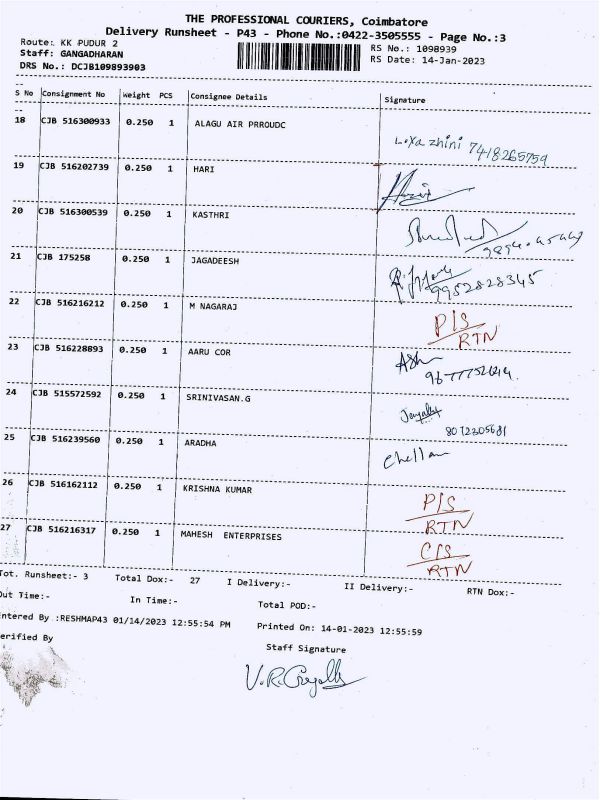 THE PROFESSIONAL COURIERS, Coimbatore
Delivery Runsheet - P43 - Phone No.:0422-3505555 - Page No.:3
Route: KK PUDUR 2
Staff: GANGADHARAN
DRS No.: DCJB109893903
RS No.: 1098939
RS Date: 14-Jan-2023
S No Consignment No Weight PCS Consignee Details Signature
18 CJB 516300933 0.250 1 ALAGU AIR PRROUDC
Loxa zhini 7418265759
19 CJB 516202739 0.250 1 HARI
20 CJB 516300539 0.250 1 KASTHRI
21 CJB 175258 0.250 1 JAGADEESH
9952828345
22 CJB 516216212 0.250 1 M NAGARAJ
P/S
RTN
23 CJB 516228893 0.250 1 AARU COR
24 CJB 515572592 0.250 1 SRINIVASAN.G
8072305681
25 CJB 516239560 0.250 1 ARADHA
Chellam
26 CJB 516162112 0.250 1 KRISHNA KUMAR
P/S
RTN
27 CJB 516216317 0.250 1 MAHESH ENTERPRISES
C/S
RTN
Tot. Runsheet:- 3 Total Dox:- 27 I Delivery:- II Delivery:- RTN Dox:-
Out Time:- In Time:- Total POD:-
ntered By :RESHMAP43 01/14/2023 12:55:54 PM Printed On: 14-01-2023 12:55:59
erified By
Staff Signature